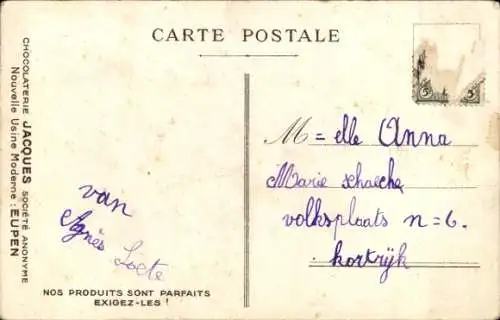 CARTE POSTALE
CHOCOLATERIE JACQUES SOCIÉTÉ ANONYME
Nouvelle Usine Moderne : EUPEN
van
Agnès Locte
NOS PRODUITS SONT PARFAITS
EXIGEZ-LES !
5 5
M=elle Anna
Marie schaeche
volksplaats n=6.
kortrijk